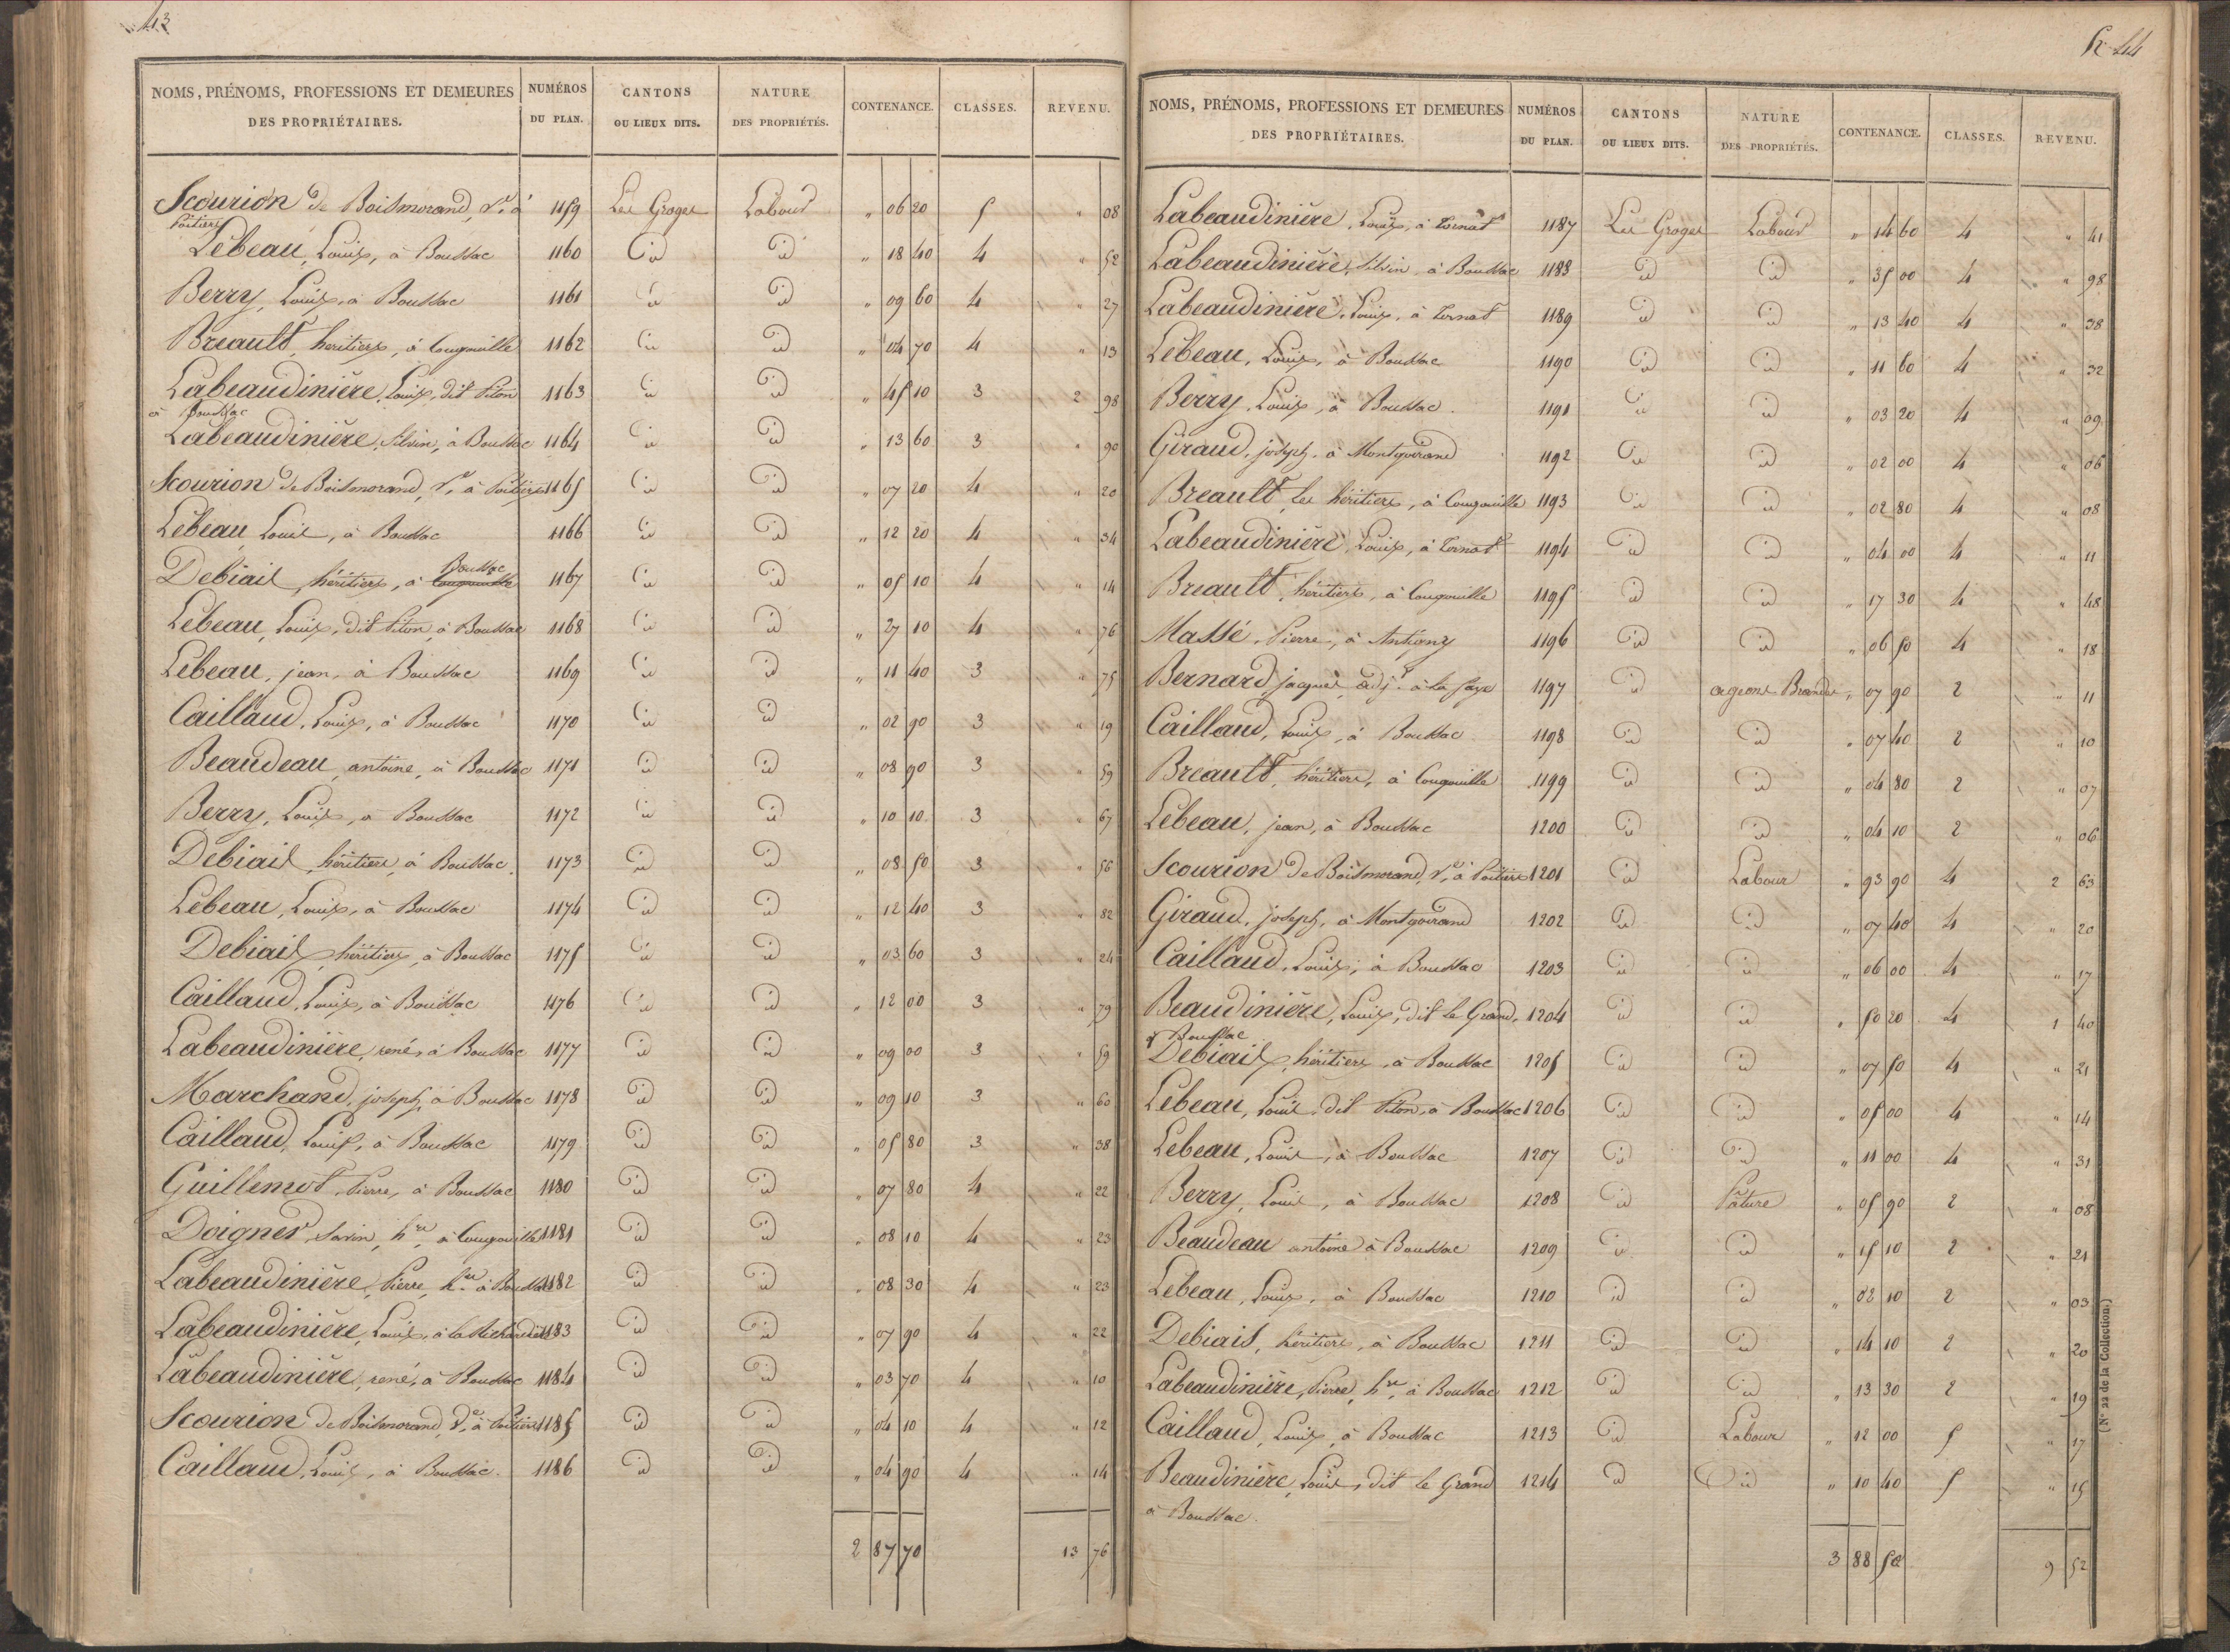 43
NOMS, PRÉNOMS, PROFESSIONS ET DEMEURES DES PROPRIÉTAIRES. NUMÉROS DU PLAN. CANTONS OU LIEUX DITS. NATURE DES PROPRIÉTÉS. CONTENANCE. CLASSES. REVENU.
Scourion de Boismorand, Ve. à Poitiers 1159 Les Groges Labour " 06 20 5 " 08
Lebeau, Louis, à Boussac 1160 id id " 18 40 4 " 52
Berry, Louis, à Boussac 1161 id id " 09 60 4 " 27
Breault, héritiers, à Cougouille 1162 id id " 04 70 4 " 13
Labeaudinière, Louis, dit Piton à Boussac 1163 id id " 45 10 3 2 98
Labeaudinière, Silvin, à Boussac 1164 id id " 13 60 3 " 90
Scourion de Boismorand, Ve. à Poitiers 1165 id id " 07 20 4 " 20
Lebeau Louis, à Boussac 1166 id id " 12 20 4 " 34
Debiais, héritiers, à Boussac 1167 id id " 05 10 4 " 14
Lebeau, Louis, dit Piton, à Boussac 1168 id id " 27 10 4 " 76
Lebeau, jean, à Boussac 1169 id id " 11 40 3 " 75
Caillaud, Louis, à Boussac 1170 id id " 02 90 3 " 19
Beaudeau, antoine, à Boussac 1171 id id " 08 90 3 " 59
Berry, Louis, à Boussac 1172 id id " 10 10 3 " 67
Debiais, héritiers, à Boussac 1173 id id " 08 50 3 " 56
Lebeau, Louis, à Boussac 1174 id id " 12 40 3 " 82
Debiais, héritiers, à Boussac 1175 id id " 03 60 3 " 24
Caillaud, Louis, à Boussac 1176 id id " 12 00 3 " 79
Labeaudinière, rené, à Boussac 1177 id id " 09 00 3 " 59
Marchand, joseph, à Boussac 1178 id id " 09 10 3 " 60
Caillaud, Louis, à Boussac 1179 id id " 05 80 3 " 38
Guillemot, Pierre, à Boussac 1180 id id " 07 80 4 " 22
Doigner, Savin, hre, à Cougouille 1181 id id " 08 10 4 " 23
Labeaudinière, Pierre, hre. à Boussac 1182 id id " 08 30 4 " 23
Labeaudinière, Louis, à la 1183 id id " 07 90 4 " 22
Labeaudinière, rené, à Boussac 1184 id id " 03 70 4 " 10
Scourion de Boismorand, Ve. à Poitiers 1185 id id " 04 10 4 " 12
Caillaud, Louis, à Boussac. 1186 id id " 04 90 4 " 14
2 87 70 13 76
44
NOMS, PRÉNOMS, PROFESSIONS ET DEMEURES DES PROPRIÉTAIRES. NUMÉROS DU PLAN. CANTONS OU LIEUX DITS. NATURE DES PROPRIÉTÉS. CONTENANCE. CLASSES. REVENU.
Labeaudinière, Louis, à Tornat 1187 Les Groges Labour " 14 60 4 " 41
Labeaudinière, Silvin, à Boussac 1188 id id " 35 00 4 " 98
Labeaudinière, Louis, à Tornat 1189 id id " 13 40 4 " 38
Lebeau, Louis, à Boussac 1190 id id " 11 60 4 " 32
Berry, Louis, à Boussac. 1191 id id " 03 20 4 " 09
Giraud, joseph, à Montgoirand 1192 id id " 02 00 4 " 06
Breault, les héritiers, à Cougouille 1193 id id " 02 80 4 " 08
Labeaudinière, Louis, à Tornat 1194 id id " 04 00 4 " 11
Breault, héritiers, à Cougouille 1195 id id " 17 30 4 " 48
Massé, Pierre, à Antigny 1196 id id " 06 50 4 " 18
Bernard jacques, adjt. à la faye 1197 id ageons Brandes " 07 90 2 " 11
Caillaud, Louis, à Boussac 1198 id id " 07 40 2 " 10
Breault, héritiers, à Cougouille 1199 id id " 04 80 2 " 07
Lebeau, jean, à Boussac 1200 id id " 04 10 2 " 06
Scourion de Boismorand, Ve. à Poitiers 1201 id Labour " 93 90 4 2 63
Giraud, joseph, à Montgoirand 1202 id id " 07 40 4 " 20
Caillaud, Louis, à Boussac 1203 id id " 06 00 4 " 17
Beaudinière, Louis, dit le Grand, à Boussac 1204 id id " 50 20 4 1 40
Debiais, héritiers, à Boussac 1205 id id " 07 50 4 " 21
Lebeau, Louis, dit Piton, à Boussac 1206 id id " 05 00 4 " 14
Lebeau, Louis, à Boussac 1207 id id " 11 00 4 " 31
Berry, Louis, à Boussac 1208 id Pâture " 05 90 2 " 08
Beaudeau antoine à Boussac 1209 id id " 15 10 2 " 21
Lebeau, Louis, à Boussac 1210 id id " 02 10 2 " 03
Debiais, héritiers, à Boussac 1211 id id " 14 10 2 " 20
Labeaudinière, Pierre, hre, à Boussac 1212 id id " 13 30 2 " 19
Caillaud, Louis, à Boussac 1213 id Labour " 12 00 5 " 17
Beaudinière, Louis, dit le Grand 1214 id id " 10 40 5 " 15
à Boussac.
3 88 50 9 52
(N° 22 de la Collection.)